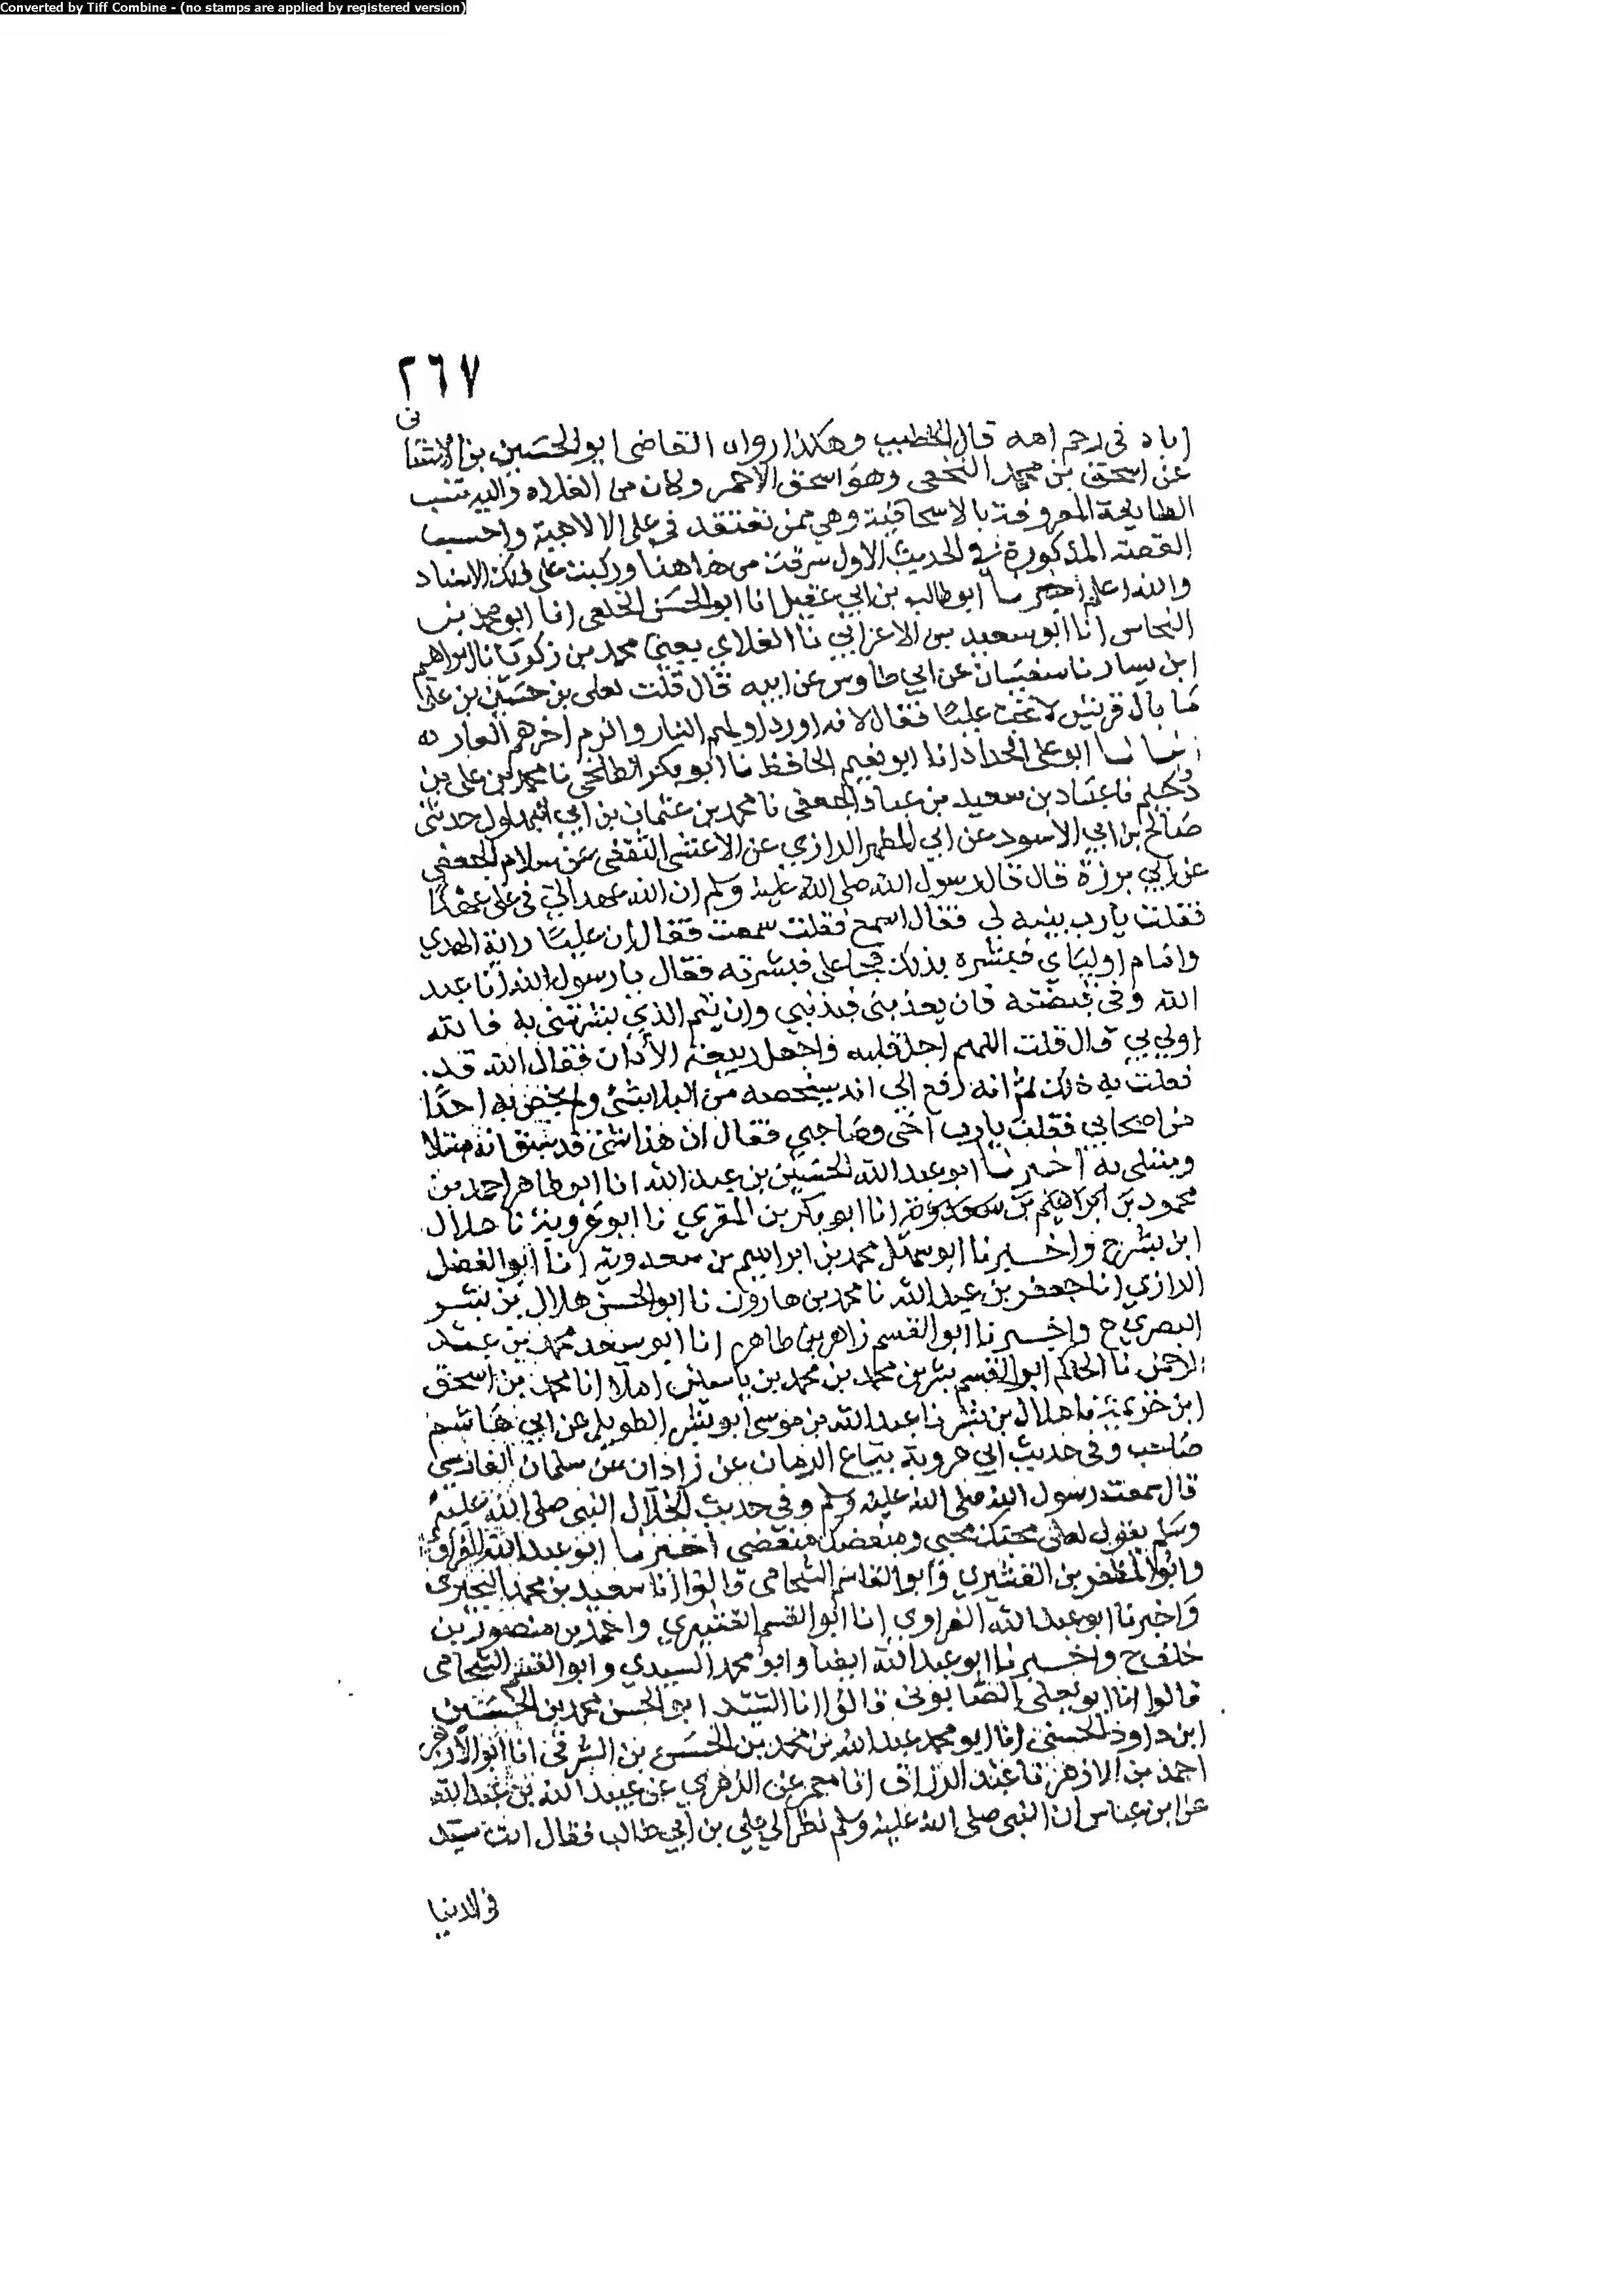 Converted by Tiff Combine - (no stamps are applied by registered version)
٢٦٧
اباه في رحم امه قال الخطيب وهكذا رواه القاضي ابو الحسين بن الاشنا
ني
عن اسحق بن محمد النخعي وهو اسحق الاحمر وكان من الغلاه واليه تنسب
الطايفة المعروفة بالاسحاقية وهي ممن تعتقد في علي الالاهية واحسب
القصة المذكورة في الحديث الاول سرقت من هاهنا وركبت على ذلك الاسناد
والله اعلم اخبرنا ابو طالب بن ابي عقيل انا ابو الحسن الخلعي انا ابو محمد بن
النحاس انا ابو سعيد بن الاعرابي نا الغلابي يعني محمد بن زكريا نا ابراهيم
ابن بسار نا سفيان عن ابي طاوس عن ابيه قال قلت لعلي بن حسين بن علي
ما بال قريش لا تحب عليا فقال لانه اورد اولهم النار والزم اخرهم العار
ابو علي الحداد انا ابو نعيم الحافظ نا ابو بكر الطلحي نا محمد بن علي بن
دحيم نا عباد بن سعيد بن عباد الجعفي نا محمد بن عثمان بن ابي البهلول حدثني
صالح بن ابي الاسود عن ابي المطهر الرازي عن الاعشى الثقفي عن سلام الجعفي
عن ابي برزة قال قال رسول الله صلى الله عليه وسلم ان الله عهد الي في علي عهدا
فقلت يا رب بينه لي فقال اسمع فقلت سمعت فقال ان عليا راية الهدي
وامام اولياي فبشره بذلك فجا علي فبشرته فقال يا رسول الله انا عبد
الله وفي قبضته فان يعذبني فبذنبي وان يتم الذي بشرتني به فالله
اولي بي قال قلت اللهم اجل قلبه واجعل ربيعه الايمان فقال الله قد
فعلت به ذلك ثم انه رفع الي انه سيخصه من البلا بشي لم يخص به احدا
من اصحابي فقلت يا رب اخي وصاحبي فقال ان هذا شي قد سبق انه مبتلا
ومبتلى به اخبرنا ابو عبد الله الحسين بن عبد الله انا ابو طاهر احمد بن
محمود بن ابراهيم بن انا ابو بكر بن المقري نا ابو عروبة نا هلال
ابن بشر ح واخبرنا ابو سهل محمد بن ابراهيم بن سعدويه انا ابو الفضل
الرازي انا جعفر بن عبد الله نا محمد بن هارون نا ابو الحسن هلال بن بشر
البصري ح واخبرنا ابو القسم زاهر بن طاهر انا ابو سعد محمد بن عبد
الرحمن نا الحاكم ابو القسم بشر بن محمد بن محمد بن ياسين املا انا محمد بن اسحق
ابن خزيمة نا هلال بن بشر نا عبد الله بن موسى ابو بشر الطويل عن ابي هاشم
صاحب وفي حديث ابي عروبة بياع الرمان عن زاذان عن سلمان الفارسي
قال سمعت رسول الله صلى الله عليه وسلم وفي حديث الخلال النبي صلى الله عليه
وسلم يقول لعلي محبك محبي ومبغضك مبغضي اخبرنا ابو عبد الله الفراوي
وابو المظفر بن القشيري وابو القاسم الشحامي قالوا انا سعيد بن محمد البحيري
واخبرنا ابو عبد الله الفراوي انا ابو القسم القشيري واحمد بن منصور بن
خلف ح واخبرنا ابو عبد الله ايضا وابو محمد السيدي وابو القسم الشحامي
قالوا انا ابو يعلى الصابوني قالوا انا السيد ابو الحسن محمد بن الحسين
ابن داود الحسني انا ابو محمد عبد الله بن محمد بن الحسن بن الشرقي انا ابو الازهر
احمد بن الازهر نا عبد الرزاق انا معمر عن الزهري عن عبيد الله بن عبد الله
عن ابن عباس ان النبي صلى الله عليه وسلم نظر الي علي بن ابي طالب فقال انت سيد
في الدنيا